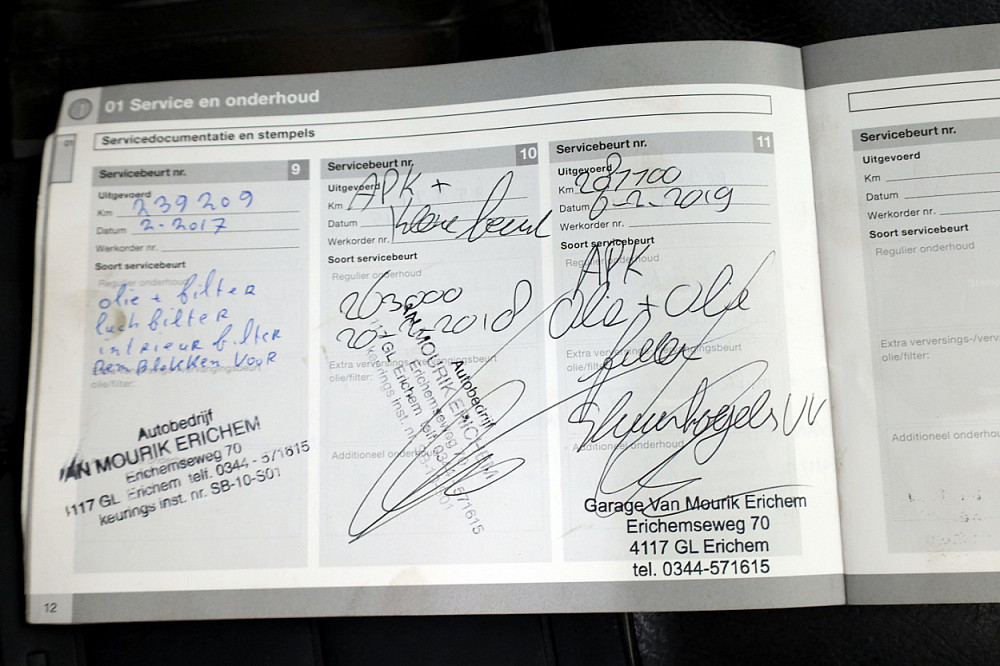 01 Service en onderhoud
01
Servicedocumentatie en stempels
Servicebeurt nr. 9
Uitgevoerd
Km 239209
Datum 2-2017
Werkorder nr.
Soort servicebeurt
Regulier onderhoud
olie + filter
luchfilter
intrieur filter
Remblokken voor
olie/filter:
Autobedrijf
VAN MOURIK ERICHEM
Erichemseweg 70
4117 GL Erichem telf. 0344 - 571615
keurings inst. nr. SB-10-S01
12
Servicebeurt nr. 10
Uitgevoerd
APK +
Km
Datum
kleine beurt
Werkorder nr.
Soort servicebeurt
Regulier onderhoud
263000
2018
Extra verversingsbeurt
olie/filter:
Additioneel onderhoud
Autobedrijf
VAN MOURIK ERICHEM
Erichemseweg 70
4117 GL Erichem telf. 0344 - 571615
keurings inst. nr.
Servicebeurt nr. 11
Uitgevoerd
Km 287100
Datum 6-2-2019
Werkorder nr.
Soort servicebeurt
Regulier onderhoud
APK
Olie + Olie
filter
Extra verversingsbeurt
olie/filter:
Stuurkogels VV
Additioneel onderhoud
Garage Van Mourik Erichem
Erichemseweg 70
4117 GL Erichem
tel. 0344-571615
Servicebeurt nr.
Uitgevoerd
Km
Datum
Werkorder nr.
Soort servicebeurt
Regulier onderhoud
Extra verversings-/verv
olie/filter:
Additioneel onderhou